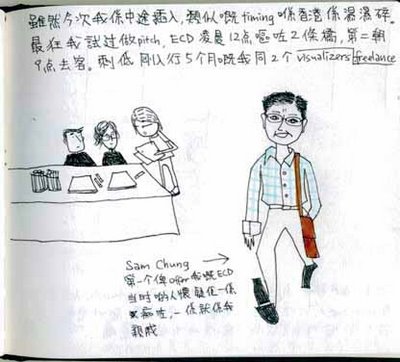 雖然今次我係中途插入, 類似嘅timing 喺香港係濕濕碎.
最狂我試过做pitch, ECD 凌晨12点嘔咗2條橋, 第二朝
9点去客. 剩低同入行5个月嘅我同2个visualizers freelance
Sam Chung
第一个俾offer我嘅ECD
当时啲人懷疑佢一係
痴咗, 一係就係我
親戚